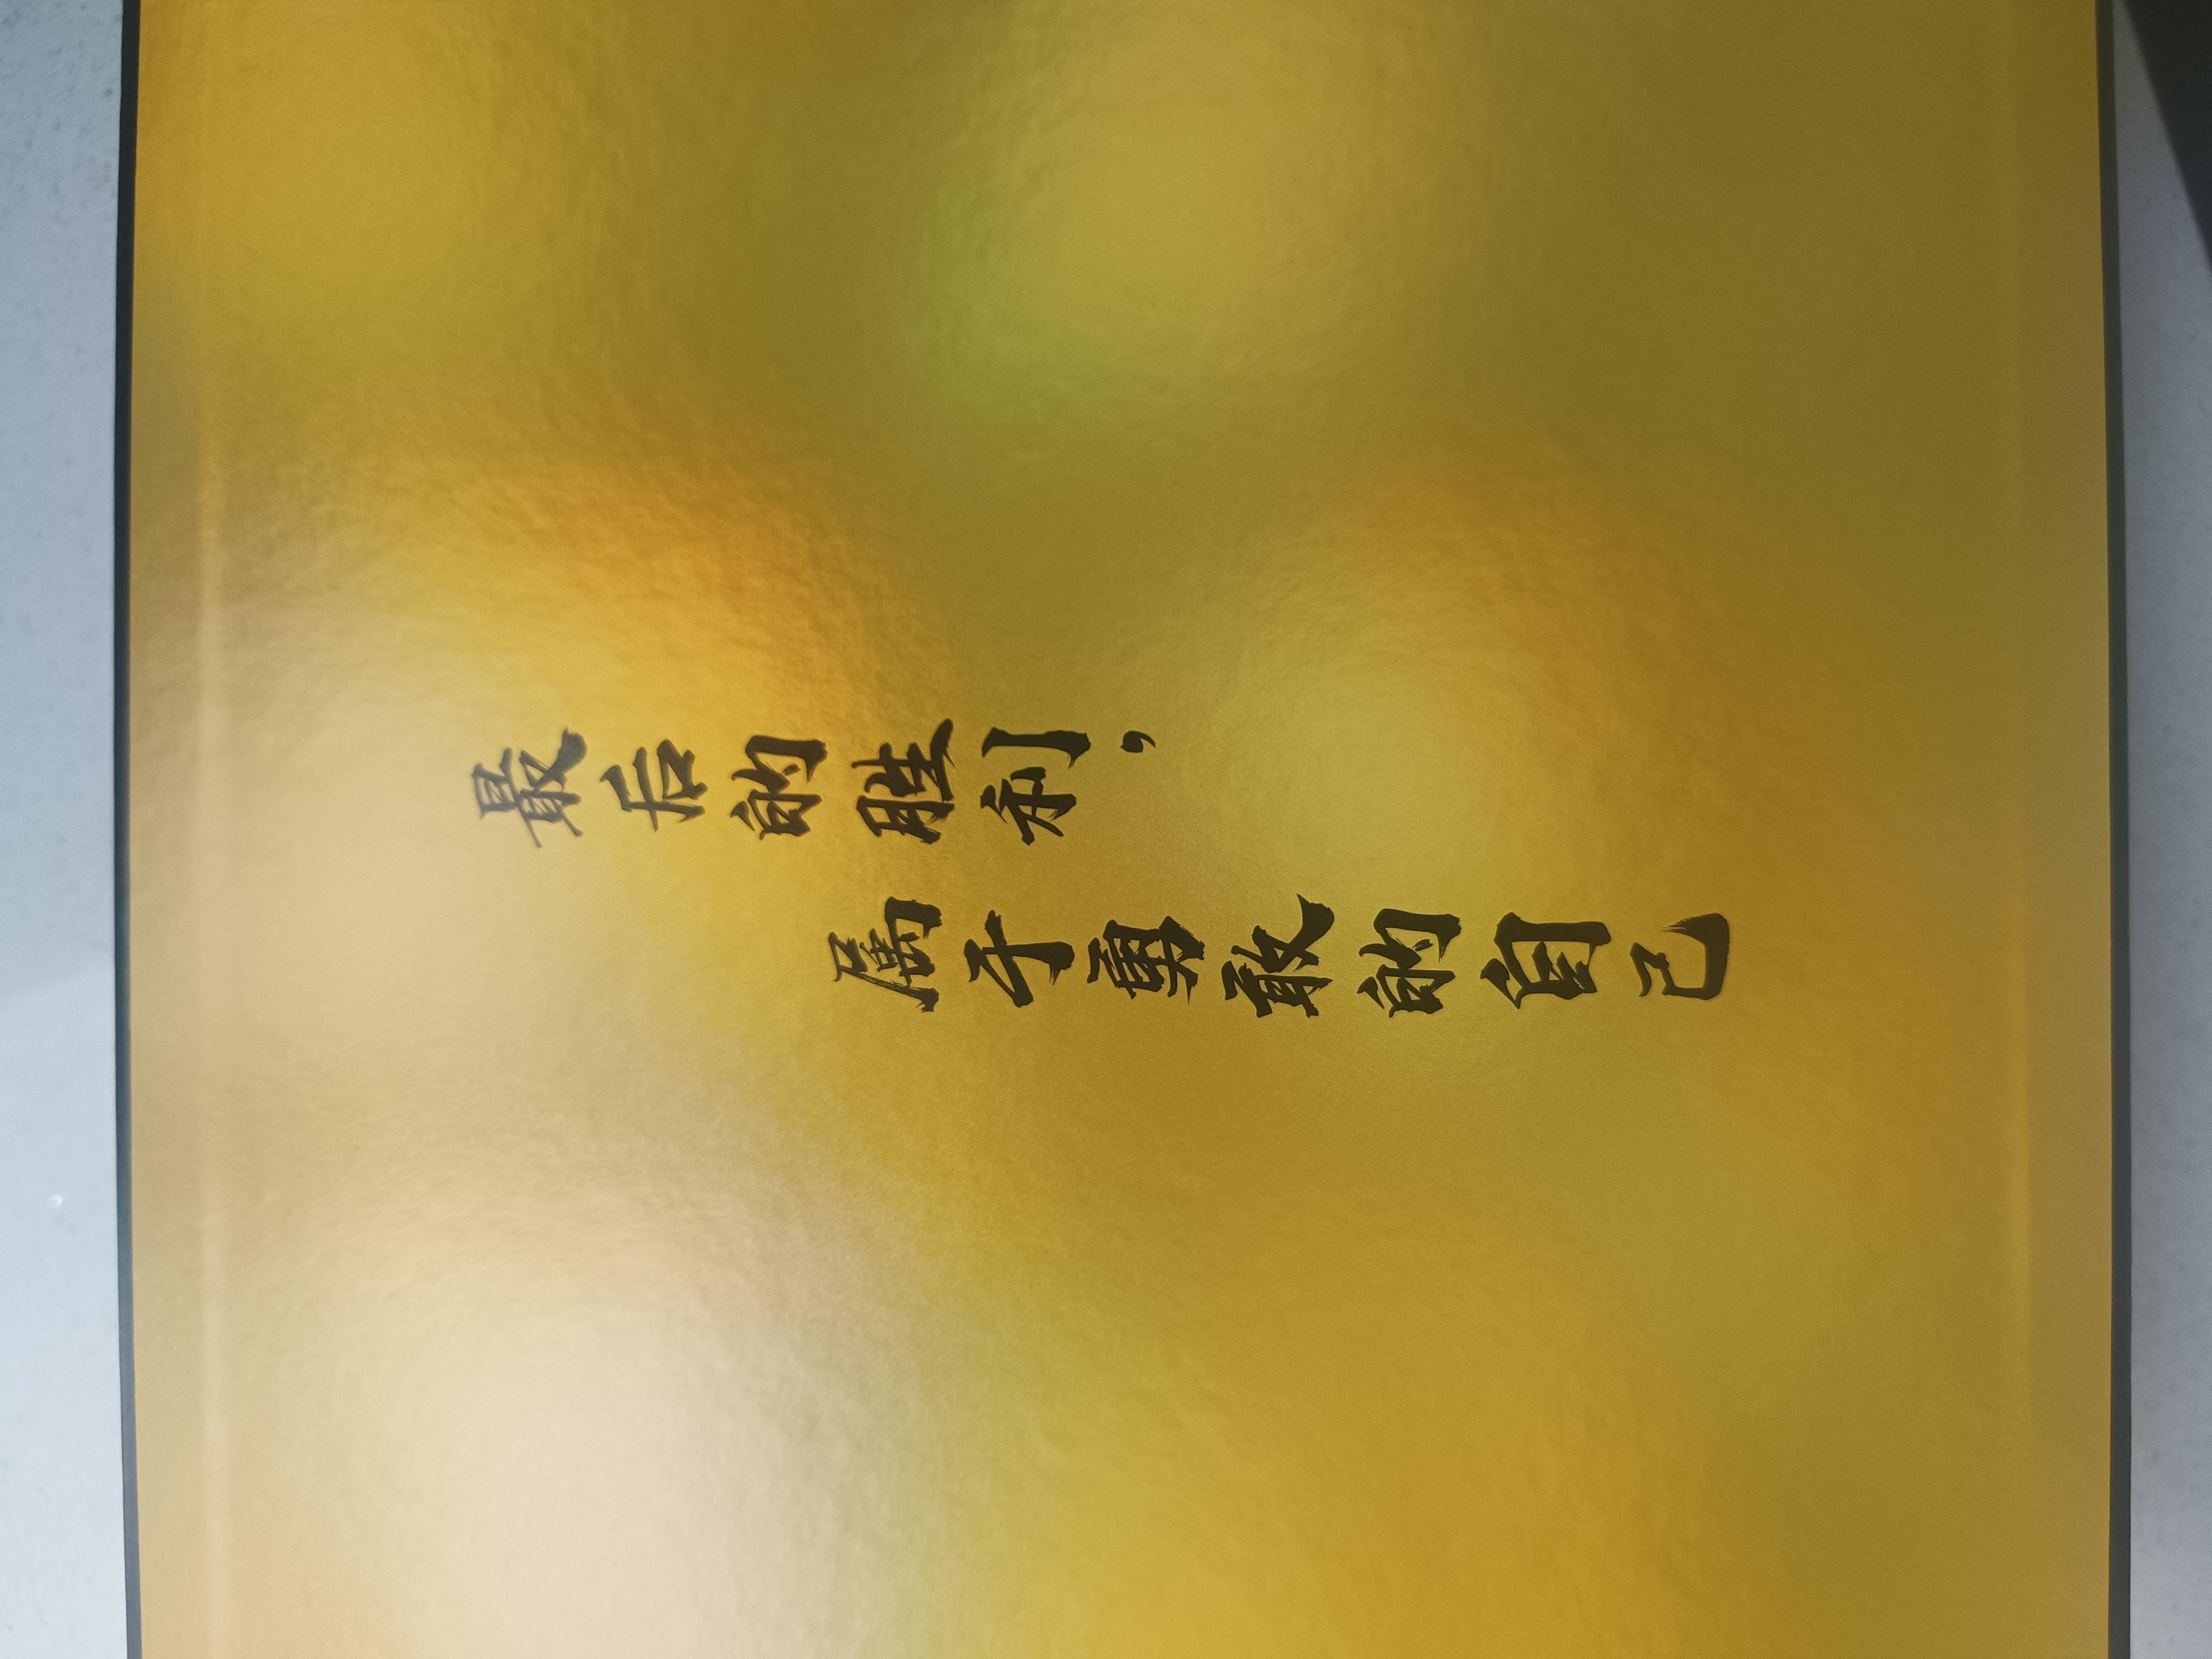 最后的胜利，
属于勇敢的自己